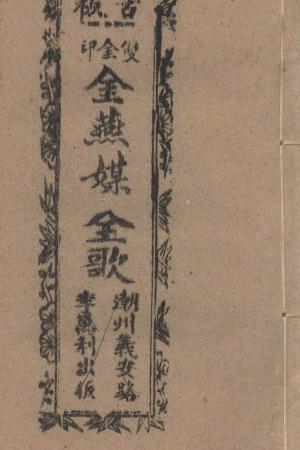 雙金印
金燕媒全歌
潮州義安路
李萬利出版